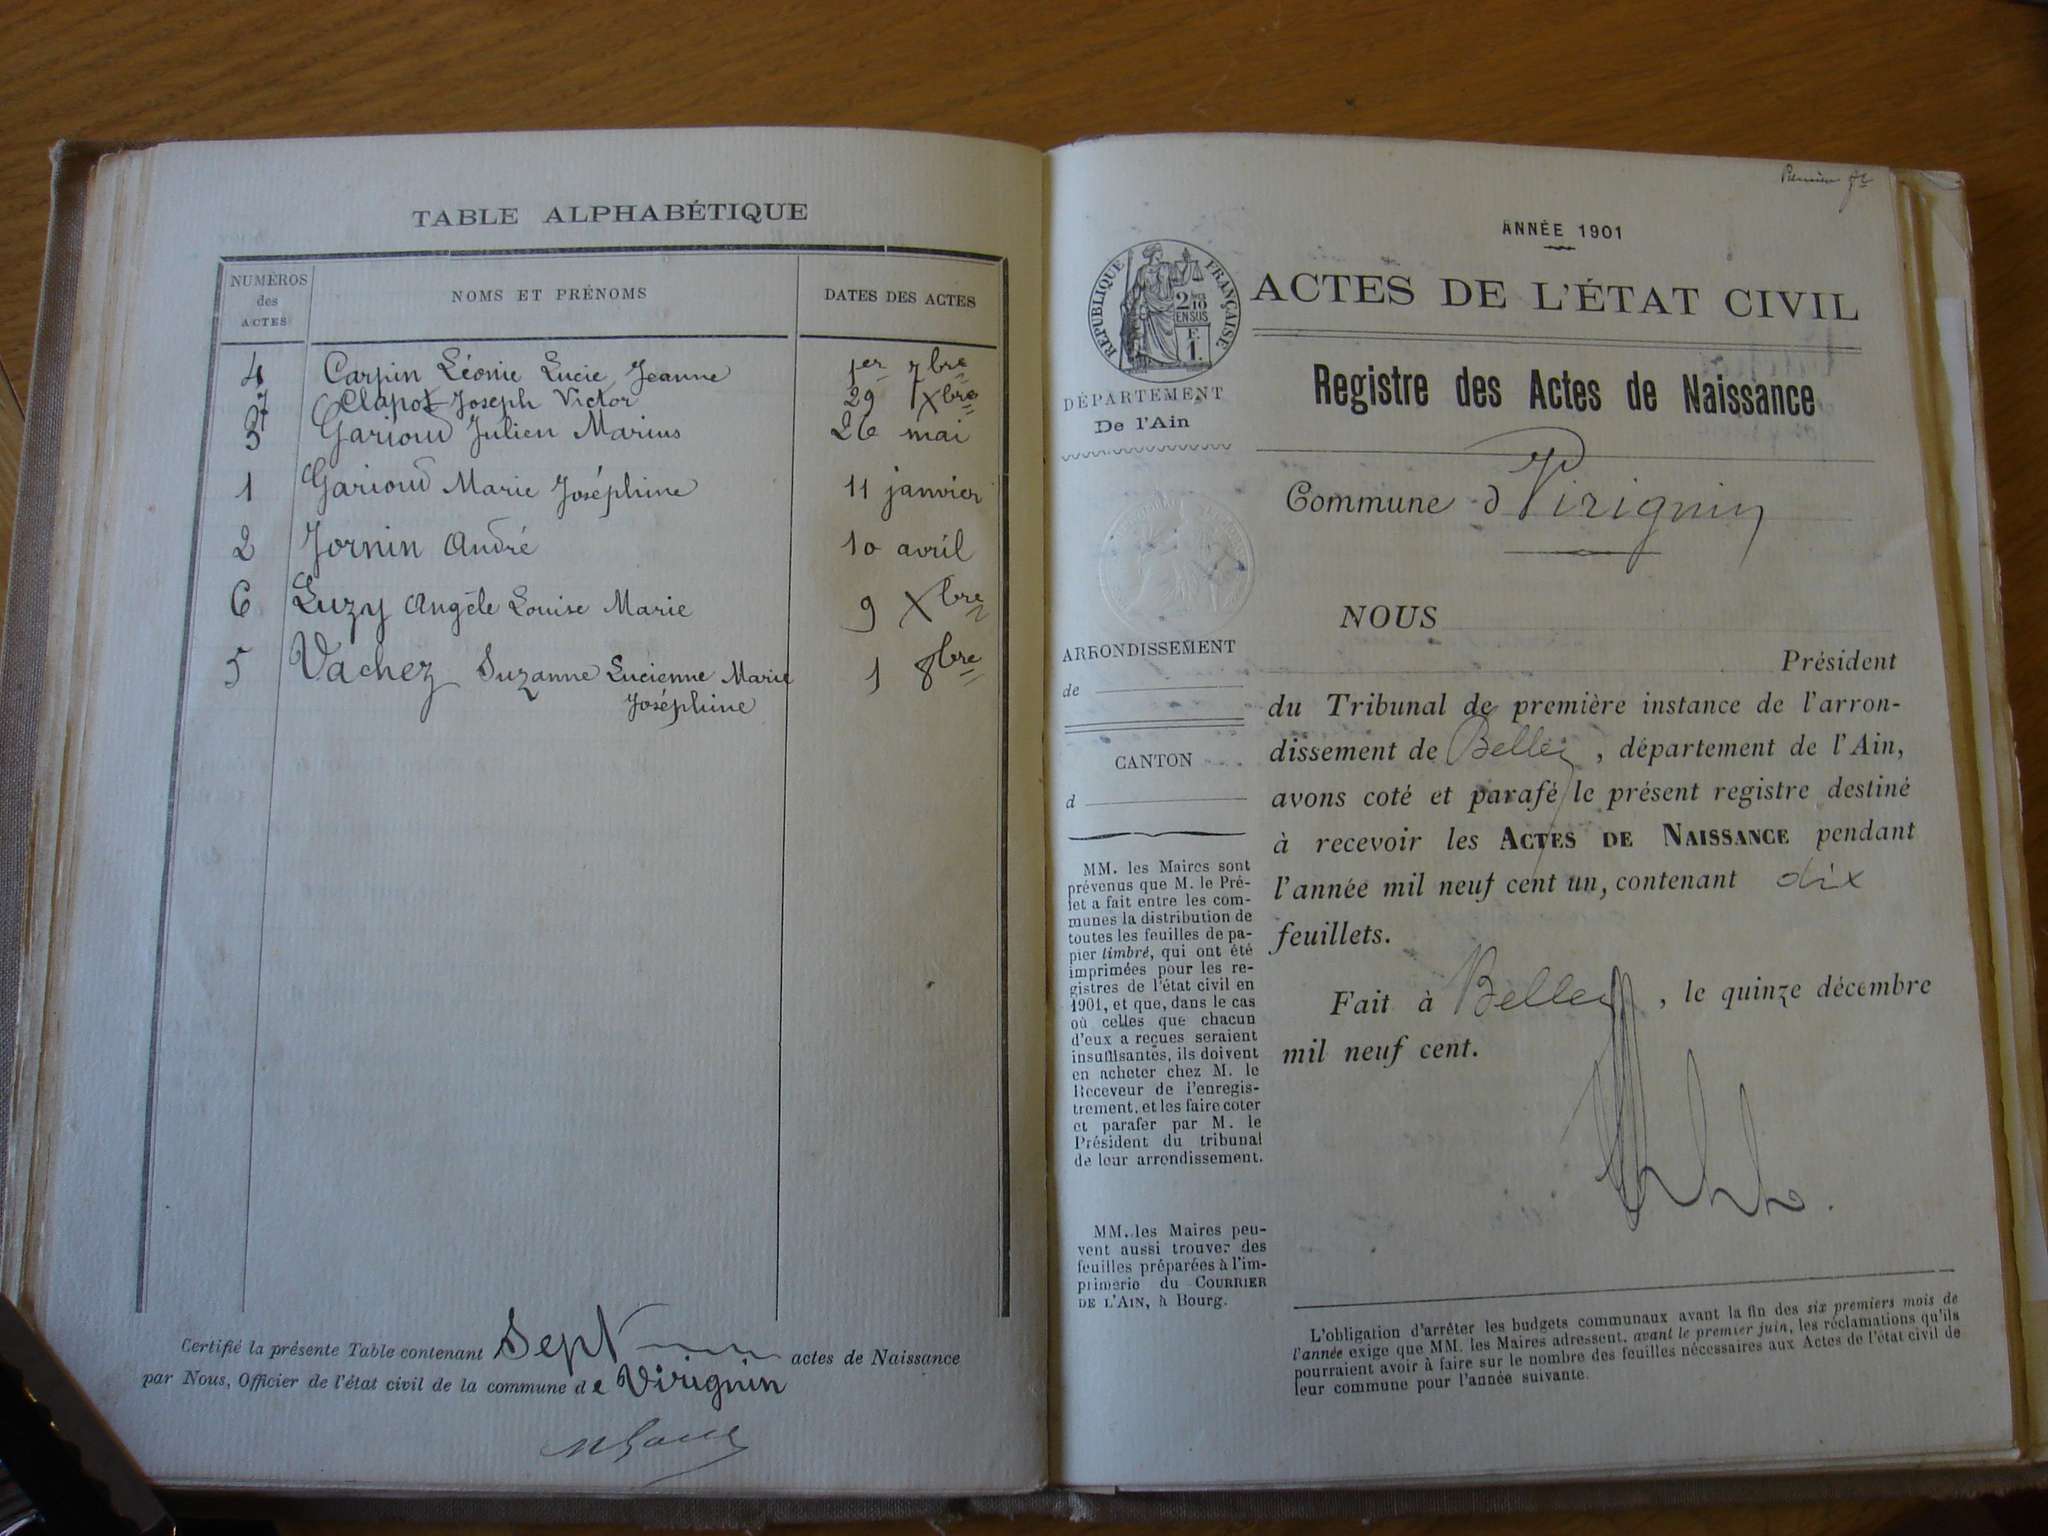 TABLE ALPHABÉTIQUE
NUMÉROS des ACTES
NOMS ET PRÉNOMS
DATES DES ACTES
4 Carpin Léonie Lucie Jeanne 1er 7bre
7 Clapot Joseph Victor 29 Xbre
3 Gariod Julien Marius 26 mai
1 Gariod Marie Joséphine 11 janvier
2 Jornin André 10 avril
6 Luzy Angèle Louise Marie 9 Xbre
5 Vachez Suzanne Lucienne Marie 1 8bre
Joséphine
Certifié la présente Table contenant Sept actes de Naissance
par Nous, Officier de l'état civil de la commune de Virignin
Premier
ANNÉE 1901
RÉPUBLIQUE FRANÇAISE
2/10 EN SUS
F. 1.
ACTES DE L'ÉTAT CIVIL
DÉPARTEMENT
De l'Ain
Registre des Actes de Naissance
Commune d Virignin
ARRONDISSEMENT
de
CANTON
d
MM. les Maires sont
prévenus que M. le Pré-
fet a fait entre les com-
munes la distribution de
toutes les feuilles de pa-
pier timbré, qui ont été
imprimées pour les re-
gistres de l'état civil en
1901, et que, dans le cas
où celles que chacun
d'eux a reçues seraient
insuffisantes, ils doivent
en acheter chez M. le
Receveur de l'enregis-
trement, et les faire coter
et parafer par M. le
Président du tribunal
de leur arrondissement.
MM. les Maires peu-
vent aussi trouver des
feuilles préparées à l'im-
primerie du COURRIER
DE L'AIN, à Bourg.
NOUS
Président
du Tribunal de première instance de l'arron-
dissement de Belley, département de l'Ain,
avons coté et parafé le présent registre destiné
à recevoir les ACTES DE NAISSANCE pendant
l'année mil neuf cent un, contenant dix
feuillets.
Fait à Belley, le quinze décembre
mil neuf cent.
L'obligation d'arrêter les budgets communaux avant la fin des six premiers mois de
l'année exige que MM. les Maires adressent, avant le premier juin, les réclamations qu'ils
pourraient avoir à faire sur le nombre des feuilles nécessaires aux Actes de l'état civil de
leur commune pour l'année suivante.